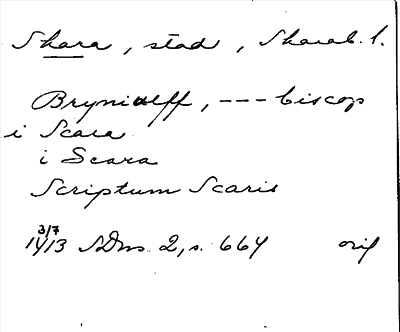 Skara, stad, Skarab. l.
Bryniolff, --- biscop
i Scara
i Scara
Scriptum Scaris
3/7
1413 SDns 2, s. 664 orig